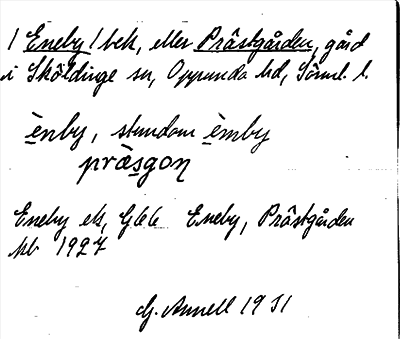 1 Eneby 1 bek, eller Prästgården, gård
i Sköldinge sn, Oppunda hd, Söml. l.
ènby, stundom èmby
præsgoɳ
Eneby ek, G66 Eneby, Prästgården
kb 1927
G. Annell 1931